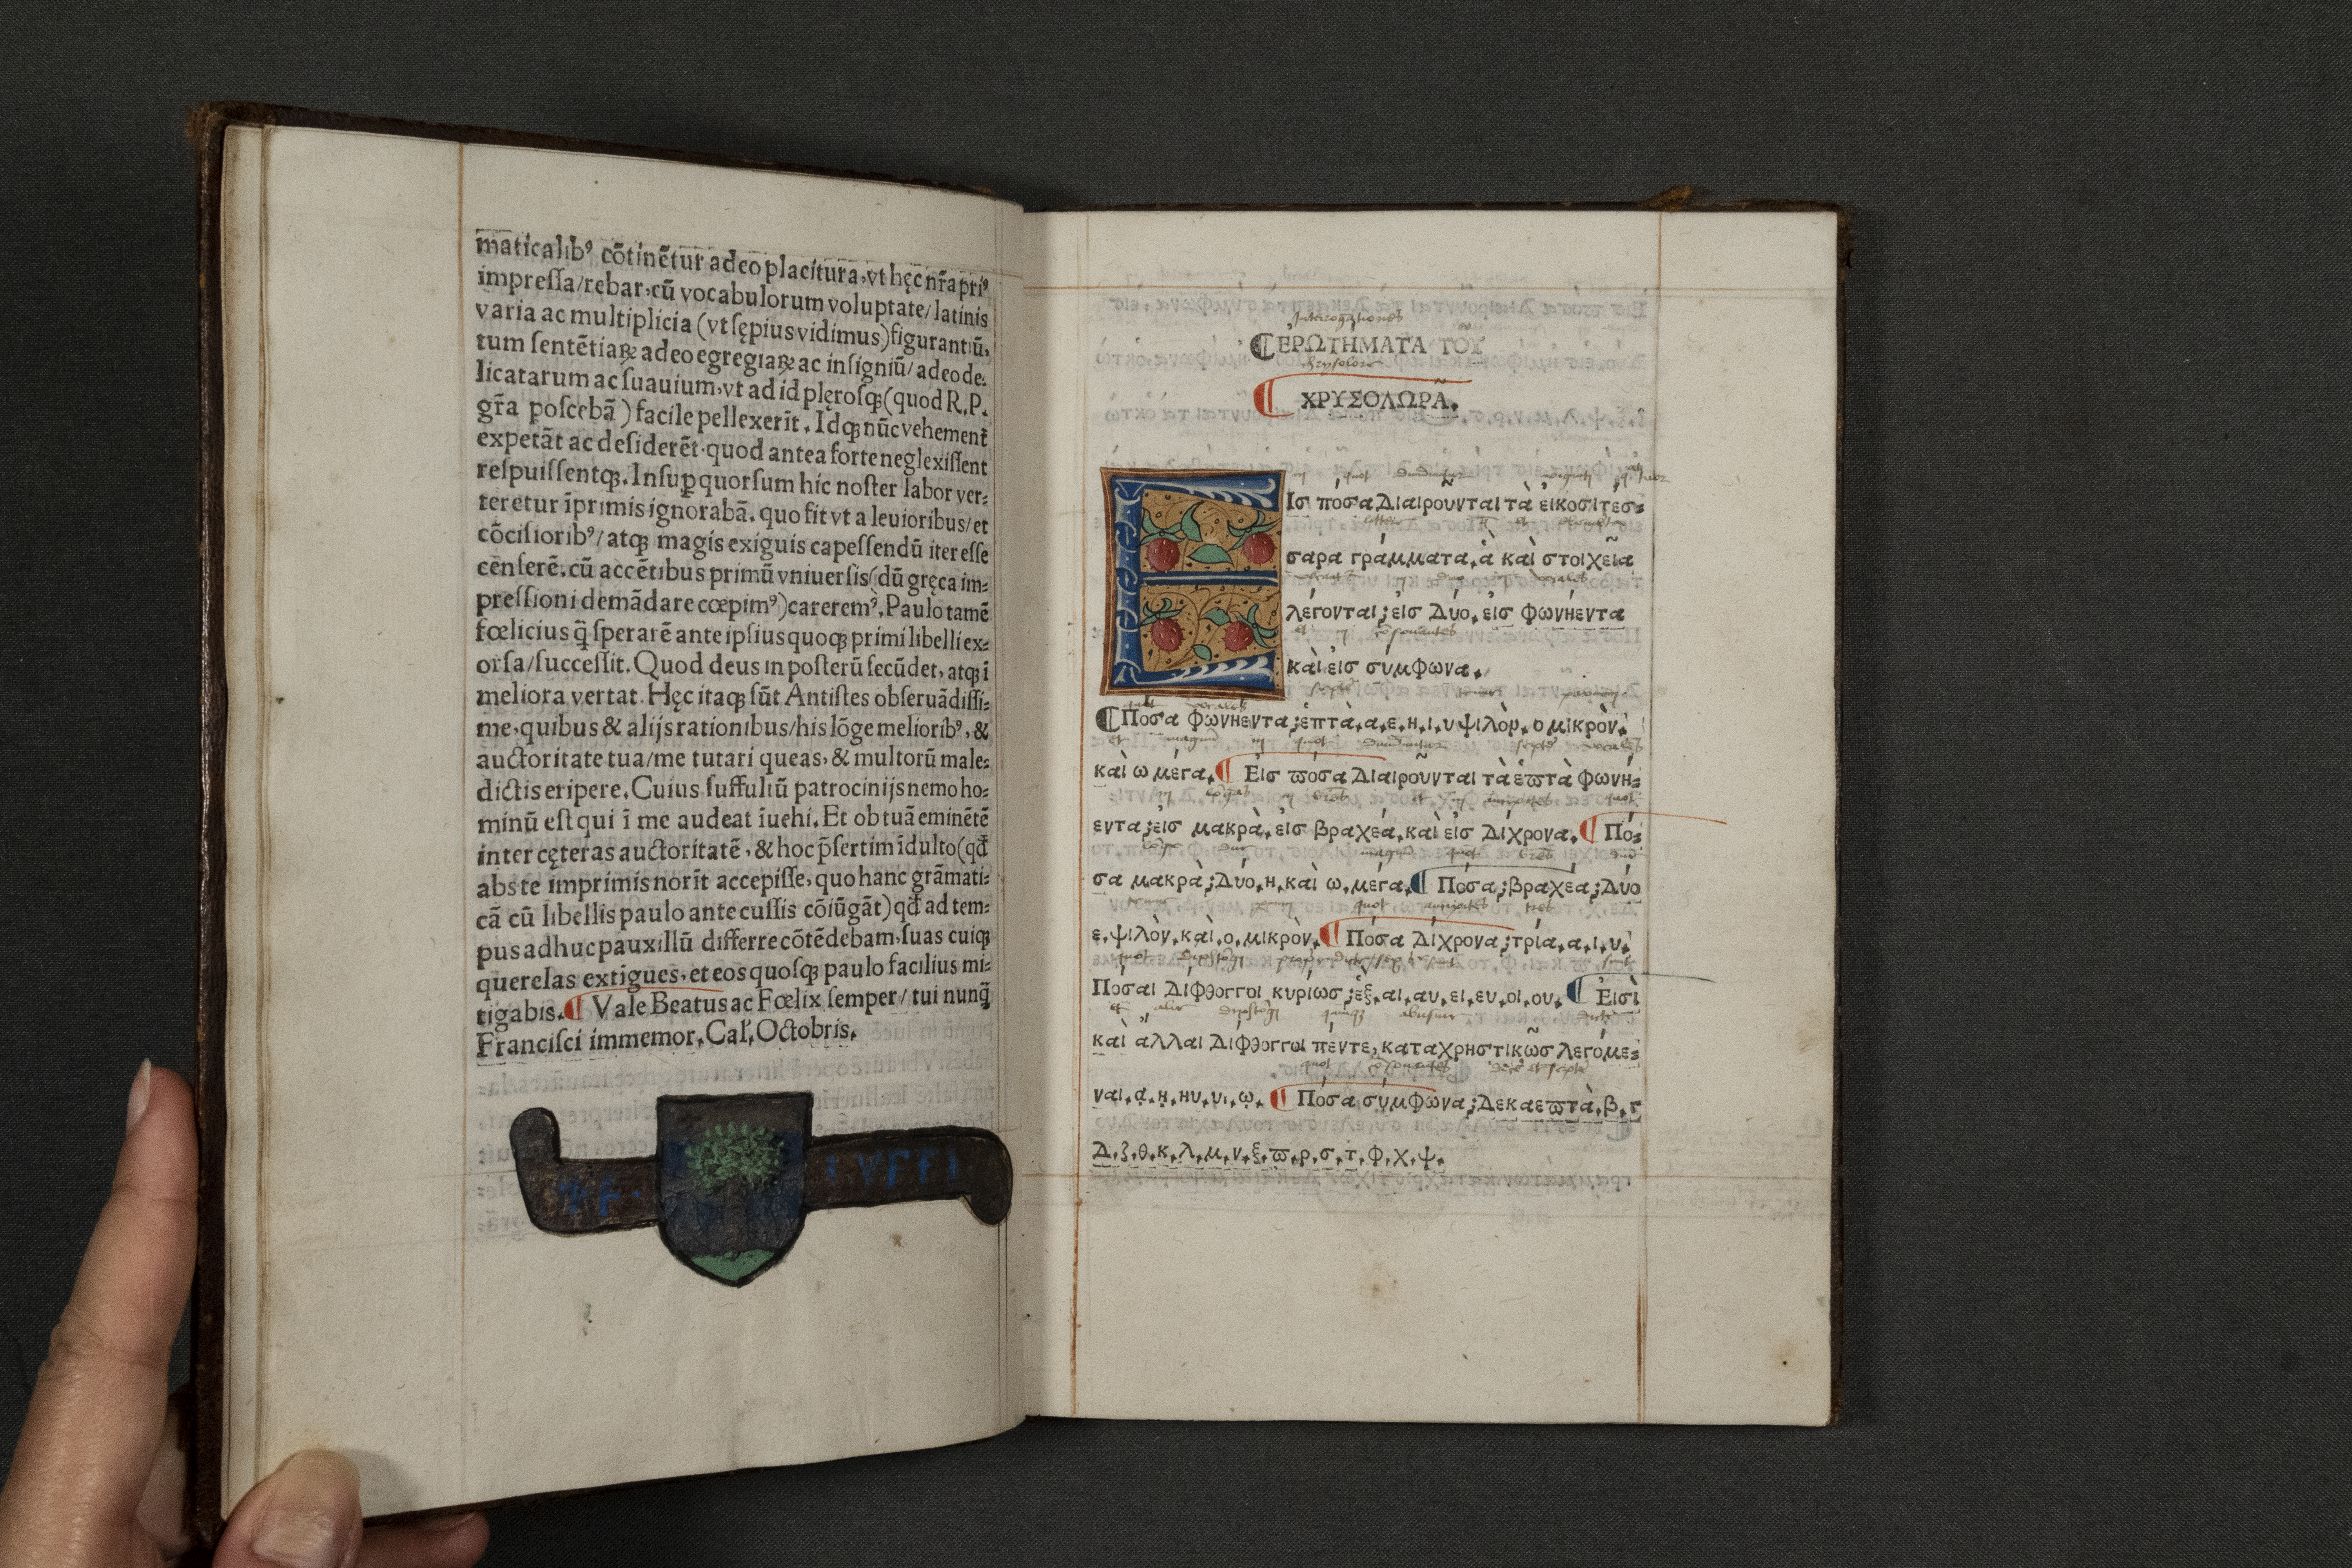 maticalibꝰ cōtinētur adeo placitura, vt hęc nr̄a priꝰ
impressa/rebar, cū vocabulorum voluptate/latinis
varia ac multiplicia (vt sępius vidimus) figurantiū,
tum sentētiaꝝ adeo egregiaꝝ ac insigniū/ adeo de-
licatarum ac suauium, vt ad id plęrosqꝫ (quod R.P.
gr̄a poscebā) facile pellexerīt. Idqꝫ nūc vehement̄
expetāt ac desiderēt. quod antea forte neglexissent
respuissentqꝫ. Insuꝑ quorsum hic noster labor ver-
teretur īprimis ignorabā. quo fit vt a leuioribus/et
cōcisioribꝰ/atqꝫ magis exiguis capessendū iter esse
cēnserē. cū accētibus primū vniuersis (dū gręca im-
pressioni demādare cœpimꝰ) careremꝰ. Paulo tamē
fœlicius q̄ sperarē ante ipsius quoqꝫ primi libelli ex-
orsa/successit. Quod deus in posterū secūdet, atqꝫ ī
meliora vertat. Hęc itaqꝫ sūt Antistes obseruādissi-
me, quibus & alijs rationibus/his lōge melioribꝰ, &
auctoritate tua/me tutari queas, & multorū male-
dictis eripere. Cuius suffultū patrocinijs nemo ho-
minū est qui ī me audeat īuehi. Et ob tuā eminētē
inter cęteras auctoritatē, & hoc p̄sertim īdulto (qd̄
abs te imprimis norīt accepisse, quo hanc grāmati-
cā cū libellis paulo ante cussis cōiūgāt) qd̄ ad tem-
pus adhuc pauxillū differre cōtēdebam, suas cuiqꝫ
querelas extigues, et eos quosqꝫ paulo facilius mi-
tigabis. ¶ Vale Beatus ac Fœlix semper/ tui nunq̄
Francisci immemor. Cal. Octobris.
Interrogationes
¶ ἘΡΩΤΗΜΑΤΑ ΤΟΥ͂
chrysolore
¶ ΧΡΥΣΟΛΩΡΑ͂.
in quot diuiduntur
ΕΙσ πόσα Διαιροῦνται τὰ εἰκοσιτέσ-
σαρα γράμματα, ἁ καὶ στοιχεῖα
λέγονται; εἰσ Δύο, εἰσ φωνήεντα
et in cōsonantes
καὶ εἰσ σύμφωνα.
¶ Πόσα Φωνήεντα; ἑπτὰ, α, ε, η, ι, υ ψιλὸν, ο μικρὸν,
et magnū in quot diuiduntur septē vocales
καὶ ω μέγα. ¶ Εἰσ πόσα Διαιροῦνται τὰ ἑπτὰ φωνή-
εντα; εἰσ μακρὰ, εἰσ βραχέα, καὶ εἰσ Δίχρονα. ¶ Πό-
σα μακρὰ; Δύο, η, καὶ ω, μέγα. ¶ Πόσα; βραχέα; Δύο
quot ancipites tres
ε, ψιλὸν, καὶ, ο, μικρὸν. ¶ Πόσα Δίχρονα; τρία, α, ι, υ.
Πόσαι Δίφθογγοι κυρίωσ; ἑξ, αι, αυ, ει, ευ, οι, ου. ¶ Εἰσὶ
et alie diphtōgi quinqꝫ abusiue dicte
καὶ αλλαι Δίφθογγοι πέντε, καταχρηστικῶσ λεγόμε-
quot cōsonantes
ναι, ᾳ, ῃ, ηυ, υι, ῳ. ¶ Πόσα σύμφωνα; Δεκαεπτὰ, β, γ
Δ, ζ, θ, κ, λ, μ, ν, ξ, π, ρ, σ, τ, φ, χ, ψ.